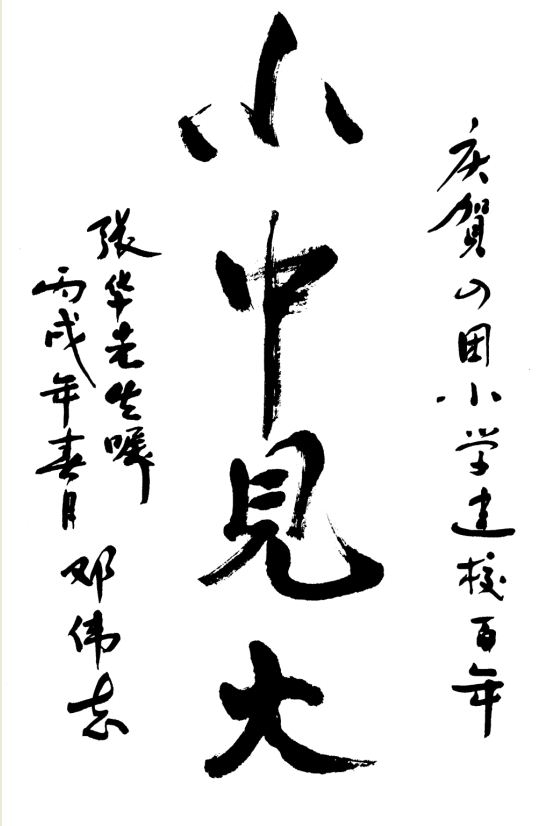 庆賀团小学建校百年
小中見大
張华先生嘱
丙戌年春月
邓伟志